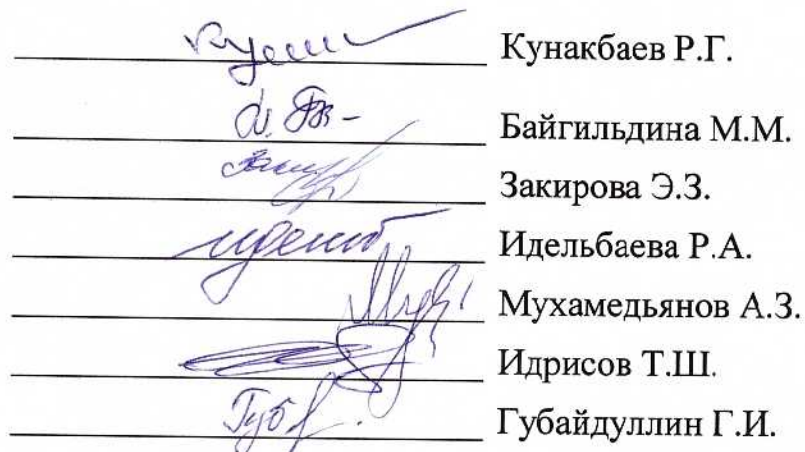 Кунакбаев Р.Г.
Байгильдина М.М.
Закирова Э.З.
Идельбаева Р.А.
Мухамедьянов А.З.
Идрисов Т.Ш.
Губайдуллин Г.И.